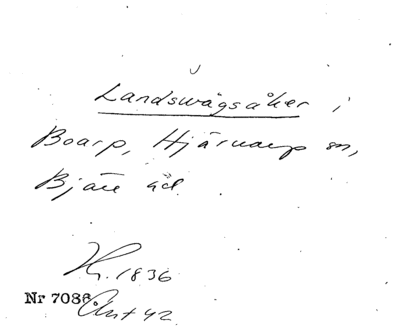 Landsvägsåker i
Boarp, Hjärnarp sn,
Bjäre hd.
Kr. 1836
Nr 7086. Ant 42